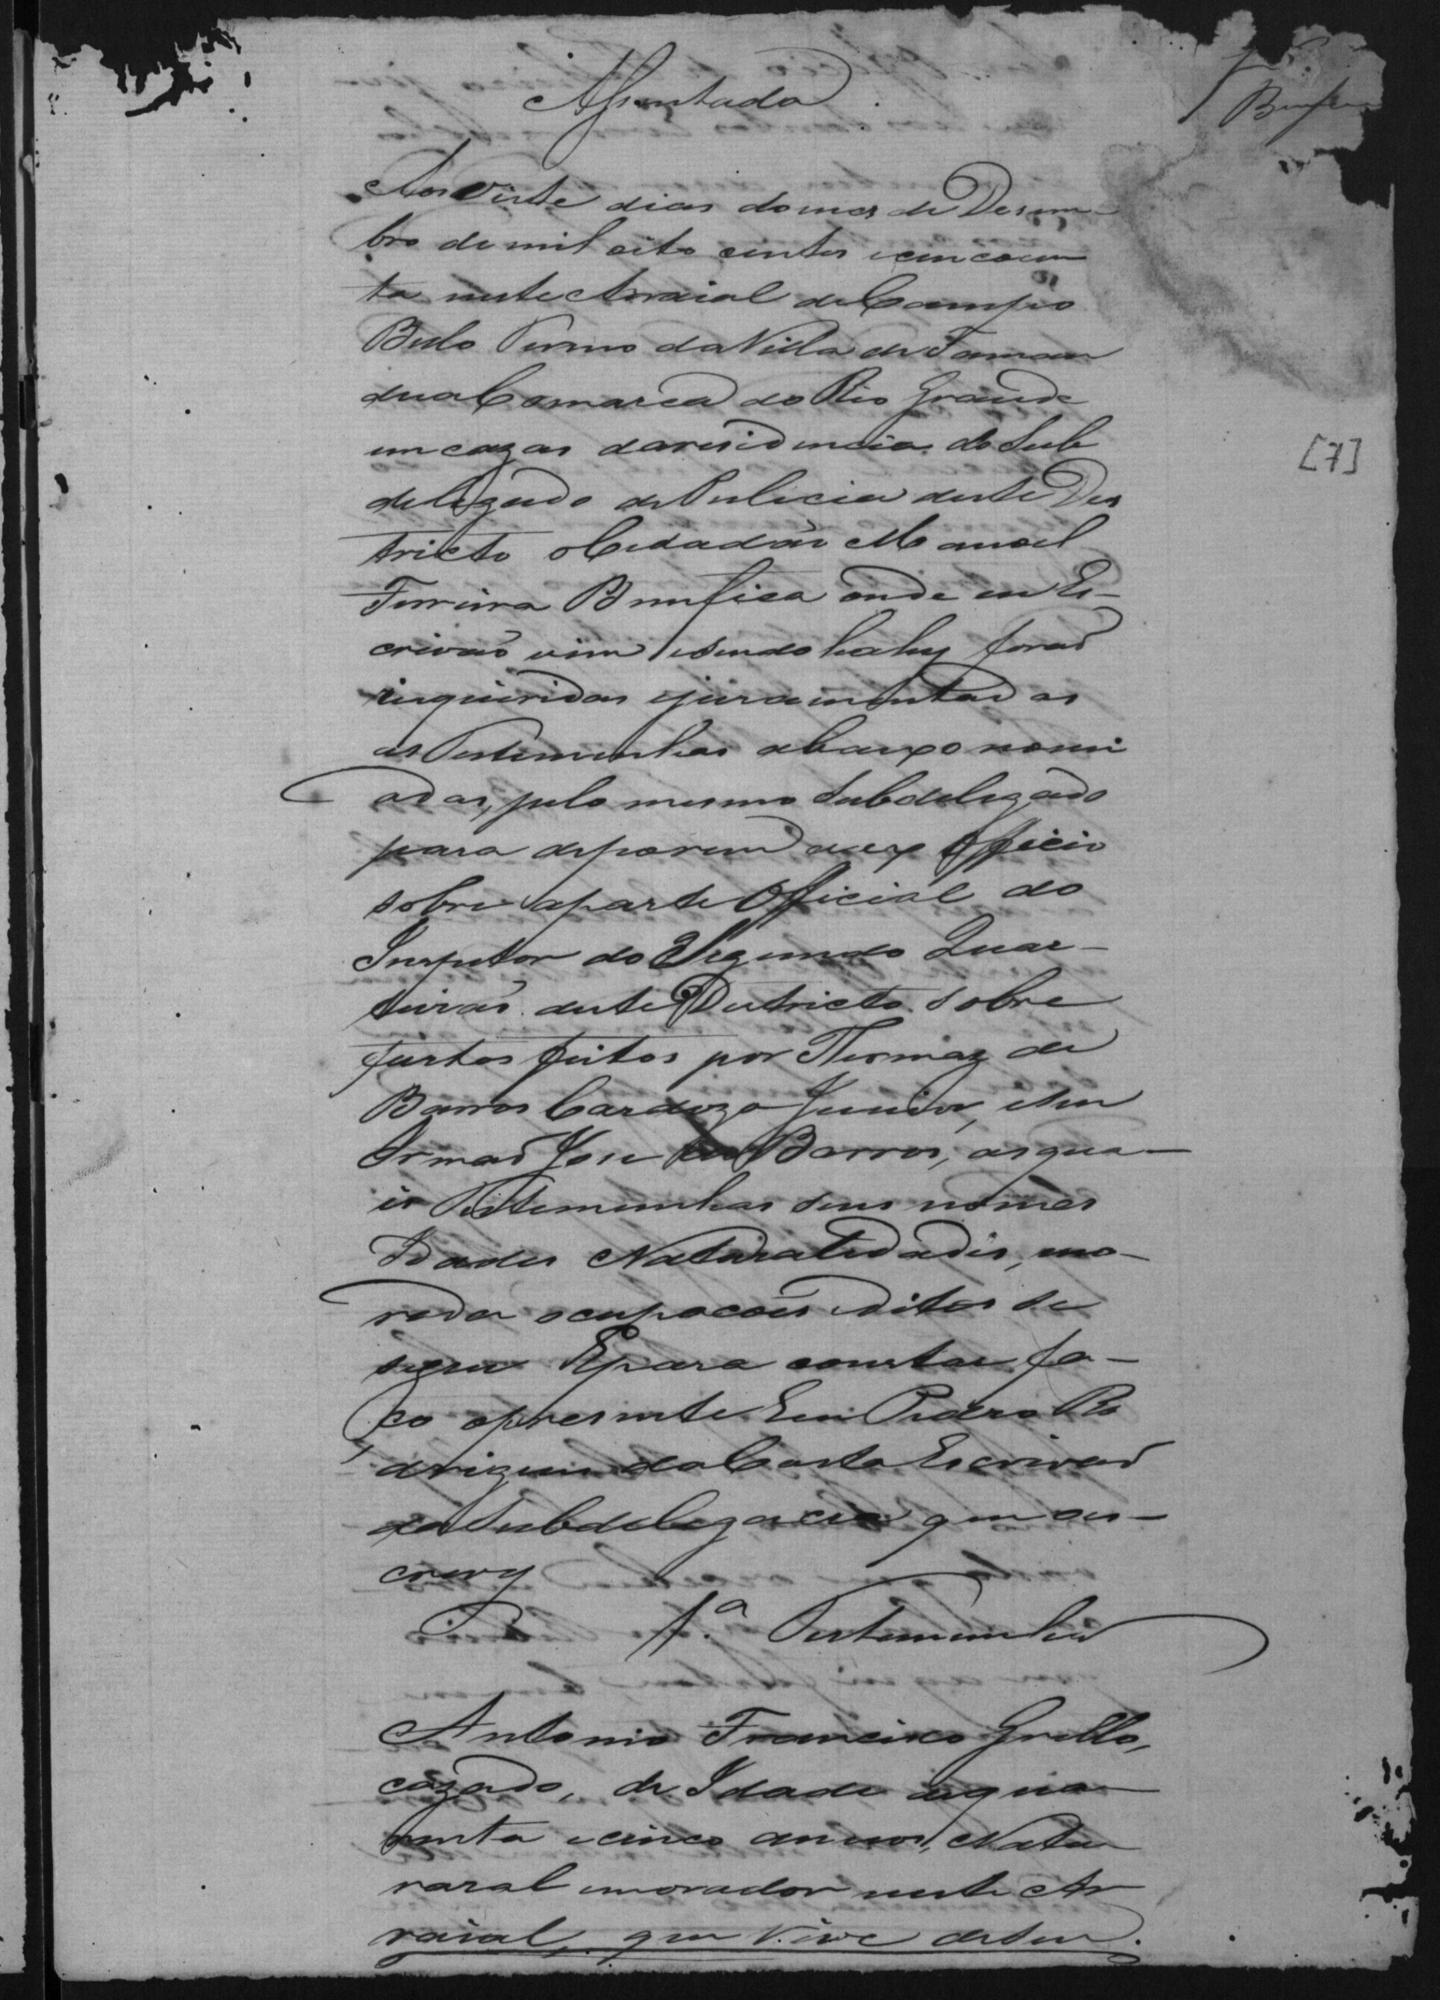 Assentada
Aos vinte dias do mes de Desem-
bro de mil oito centos e cincoen
ta neste Arraial de Campo
Bello Termo da Villa de Taman
dua Comarca do Rio Grande
em cazas da residencia do Sub
delegado de Pulicia deste Des
tricto o Cidadão Manoel
Ferreira Bemfica onde eu Es-
crivaõ vim e sendo hahy foraõ
requeridas e juramentadas
as Testemunhas abaixo nomi
adas, pelo mesmo Subdelegado
para deporem a ex Officio
sobre a parte Official do
Inspetor do Segundo Quar-
teiraõ deste Destricto sobre
furtos feitos por Thomaz de
Barros Cardozo Junior, e seu
Irmaõ Jose de Barros, as qua-
is Testemunhas seus nomes
Idades Naturalidades, mo-
radas ocupacoens e ditos se
segue E para constar fa-
ço o presente Eu Pedro Ro
drigues da Costa Escrivaõ
da Subdelegacia que es-
crevy
1.ª Testemunha
Antonio Francisco Grillo,
cazado, de Idade de qua-
renta e cinco annos, Natu
raral e morador neste Ar
raial, que vive de seu
[7]